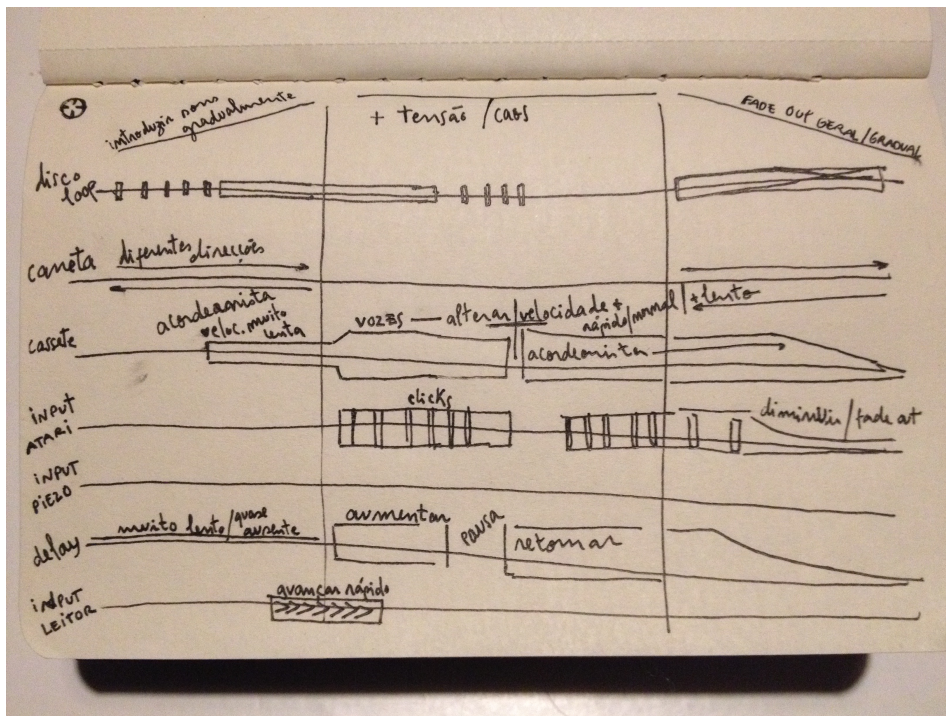 introduzir sons
gradualmente
+ tensão / caos
FADE OUT GERAL/GRADUAL
disco
loop
caneta
diferentes direcções
cassete
acordeonista
veloc. muito
lenta
vozes — alterar/velocidade +
rápido/normal/+lento
acordeonista
INPUT
ATARI
clicks
diminuir/fade out
INPUT
PIEZO
delay
muito lento/quase
ausente
aumentar
pausa
retomar
INPUT
LEITOR
avançar rápido